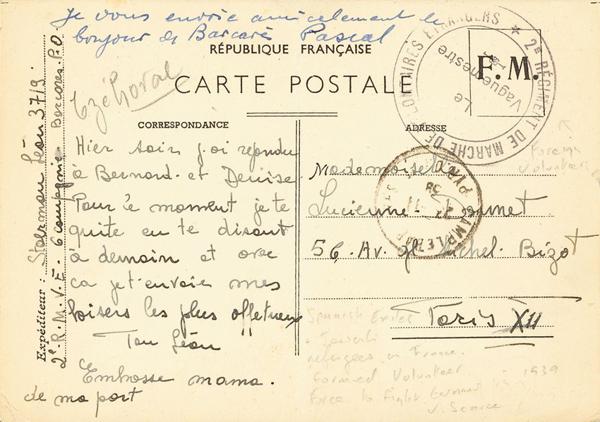 Je vous envoie amicalement le
bonjour de Barcarès Pascal
RÉPUBLIQUE FRANÇAISE
CARTE POSTALE
F.M.
2e RÉGIMENT DE MARCHE DE VOLONTAIRES ÉTRANGERS
Le
Vaguemestre
CORRESPONDANCE
ADRESSE
Expéditeur : Léon 3719.
2e. R. M. V. E - 6 compagnie Barcarès. P.O.
Hier soir j.ai repondu
à Bernard. et Denise
Pour le moment je te
quite en te disant
à demain et avec
ca je t'envoie mes
baisers les plus affetueux
Ton Léon
Embrosse mama.
de ma part
Mademoiselle
Lucienne
56. Av. gl Michel. Bizot
Paris XII
Foreign
Volunteer
Spanish Exiles
refugees in France.
Formed Volunteer
Force to fight 1939